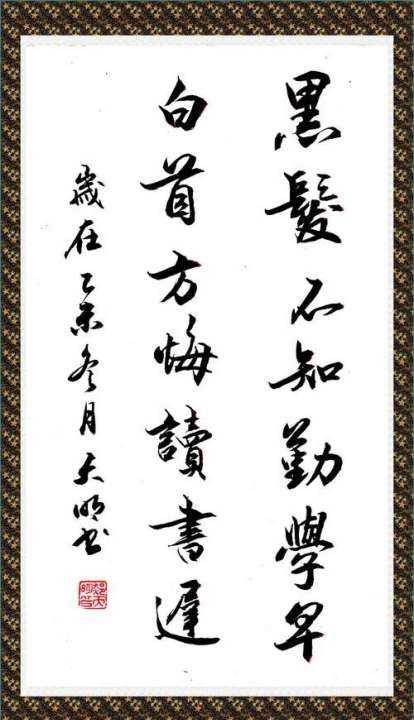 黑髮不知勤學早
白首方悔讀書遲
歲在乙未冬月天明書